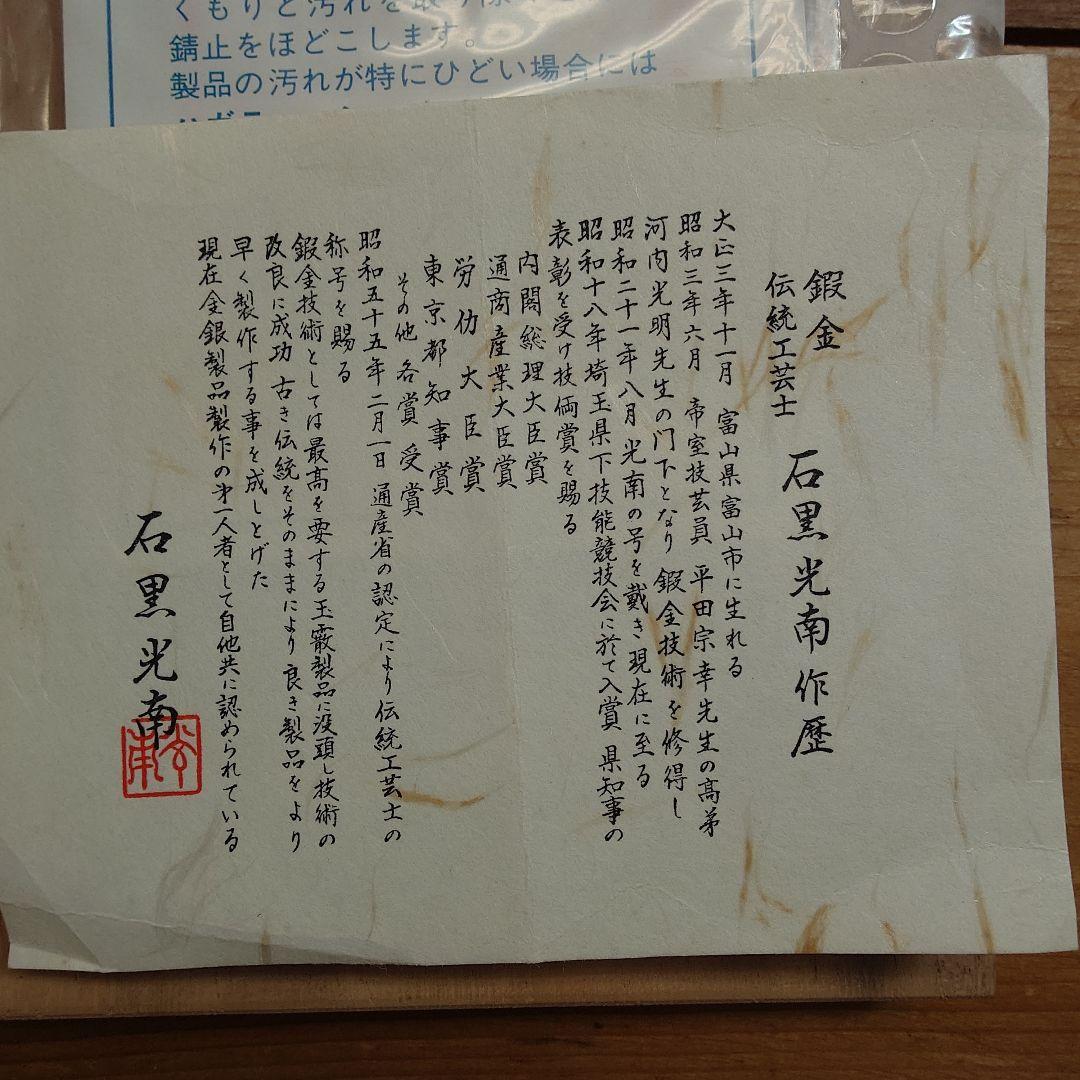 錆止をほどこします。
製品の汚れが特にひどい場合には
鍜金
伝統工芸士
石黒光南作歴
大正三年十一月 富山県富山市に生れる
昭和三年六月 帝室技芸員 平田宗幸先生の高弟
河内光明先生の門下となり 鍜金技術を修得し
昭和二十一年八月光南の号を戴き現在に至る
昭和十八年埼玉県下技能競技会に於て入賞 県知事の
表彰を受け技倆賞を賜る
内閣総理大臣賞
通商産業大臣賞
労仂大臣賞
東京都知事賞
その他 各賞受賞
昭和五十五年二月一日 通産省の認定により伝統工芸士の
称号を賜る
鍜金技術としては最高を要する玉霰製品に没頭し技術の
改良に成功 古き伝統をそのままにより良き製品をより
早く製作する事を成しとげた
現在金銀製品製作の第一人者として自他共に認められている
石黒光南